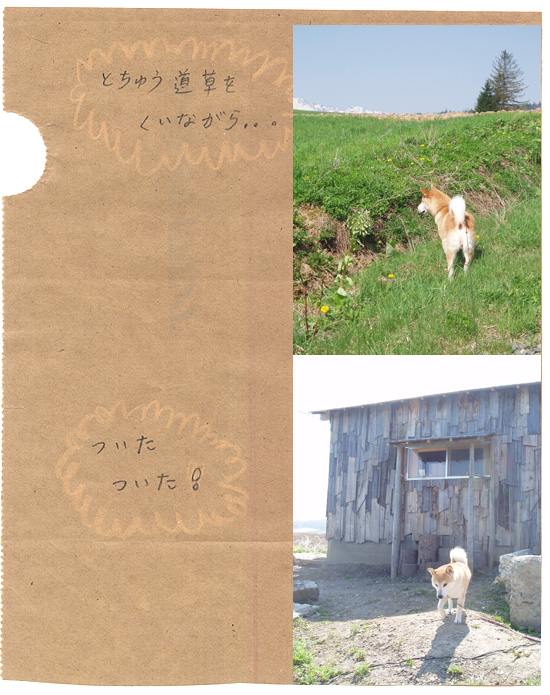 とちゅう道草を
くいながら...。
ついた
ついた!